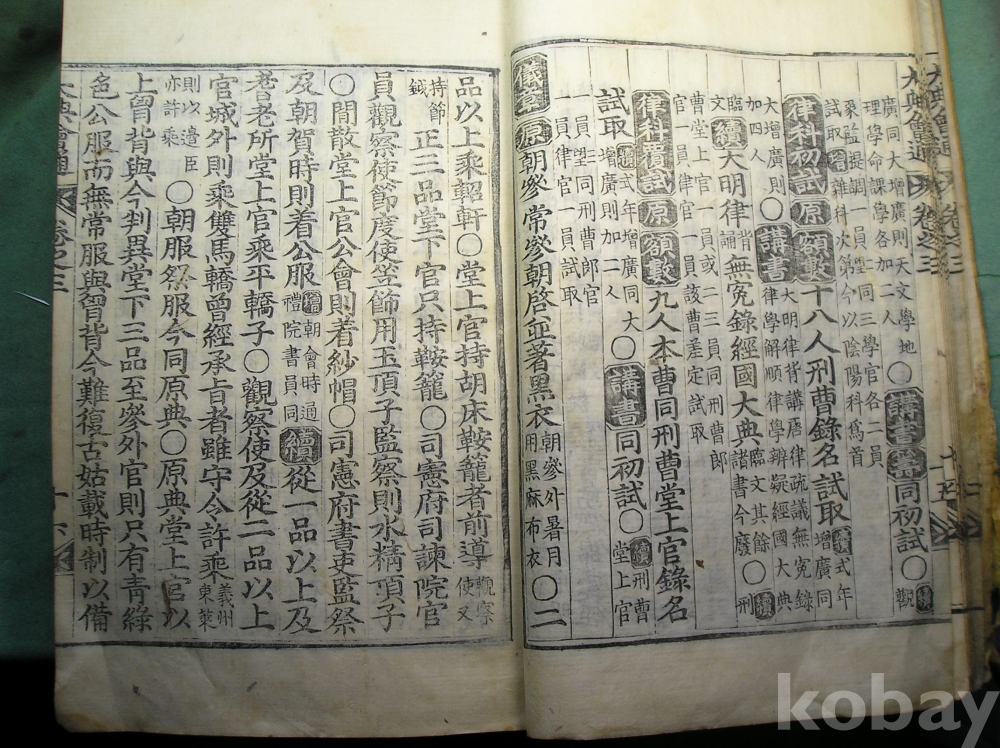 大典會通 卷之三 十五
廣同大增廣則天文學地
理學命課學各加二人
○講書同初試○續觀
象監提調一員二望同三學官各二員
試取增雜科次第今以陰陽科爲首
律科初試原額數十八人刑曹錄名試取增式年
增廣同
大增廣則
加四人
○講書大明律背講唐律疏議無冤錄
律學解頤律學辨疑經國大典
臨文續大明律背誦無冤錄經國大典臨文其餘
諸書今廢○續刑
曹堂上官一員或二三員同刑曹郎
官一員律官一員該曹差定試取
律科覆試原額數九人本曹同刑曹堂上官錄名
試取增式年增廣同大
增廣則加二人
○講書同初試○續刑曹
堂上官
一員二望同刑曹郎官
一員律官一員試取
儀章原朝參常參朝啓並著黑衣朝參外暑月
用黑麻布衣○二
品以上乘軺軒○堂上官持胡床鞍籠者前導觀察
使又
持節
鉞
正三品堂下官只持鞍籠○司憲府司諫院官
員觀察使節度使笠飾用玉頂子監察則水精頂子
○閒散堂上官公會則着紗帽○司憲府書吏監祭
及朝賀時則着公服增朝會時通
禮院書員同
續從一品以上及
耆老所堂上官乘平轎子○觀察使及從二品以上
官城外則乘雙馬轎曾經承旨者雖守令許乘義州
東萊
則以遣臣
亦許乘
○朝服祭服今同原典○原典堂上官以
上胷背與今判異堂下三品至參外官則只有青綠
色公服而無常服與胷背今難復古姑載時制以備
大典會通 卷之三 十六